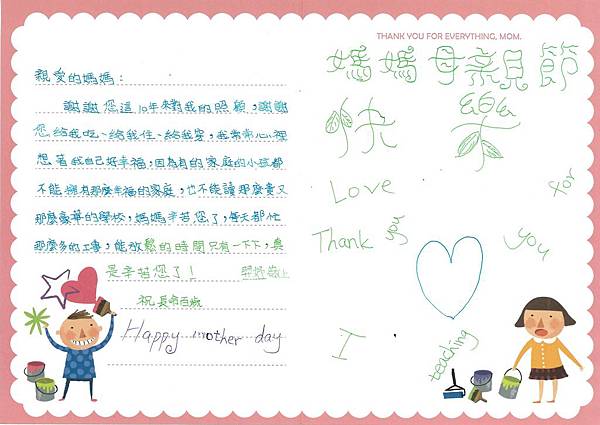 親愛的媽媽：
謝謝您這10年來對我的照顧，謝謝
您給我吃、給我住、給我穿，我常常心裡
想著我自己好幸福，因為有的家庭的小孩都
不能擁有那麼幸福的家庭，也不能讀那麼貴又
那麼豪華的學校，媽媽辛苦您了，每天都忙
那麼多的工事，能放鬆的時間只有一下下，真
是辛苦您了！
敬上
祝長命百歲
Happy mother day
THANK YOU FOR EVERYTHING, MOM.
媽媽母親節
快樂
Love
for
Thank you
you
I
teaching